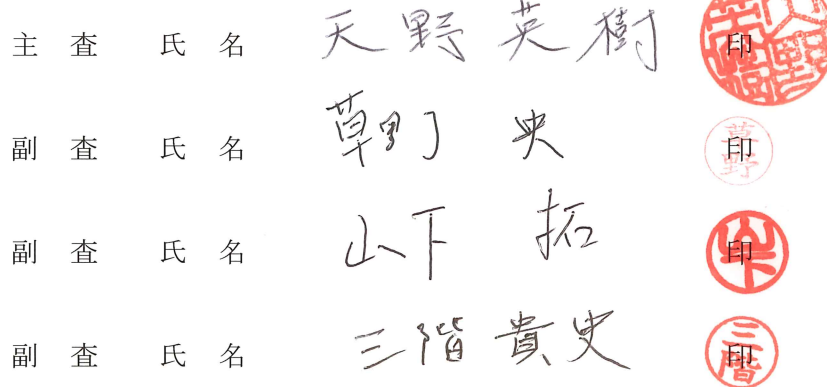 主 査 氏 名 天 野 英 樹 印
副 査 氏 名 草野 史 印 草野
副 査 氏 名 山下 拓 印 山下
副 査 氏 名 三階 貴史 印 三階